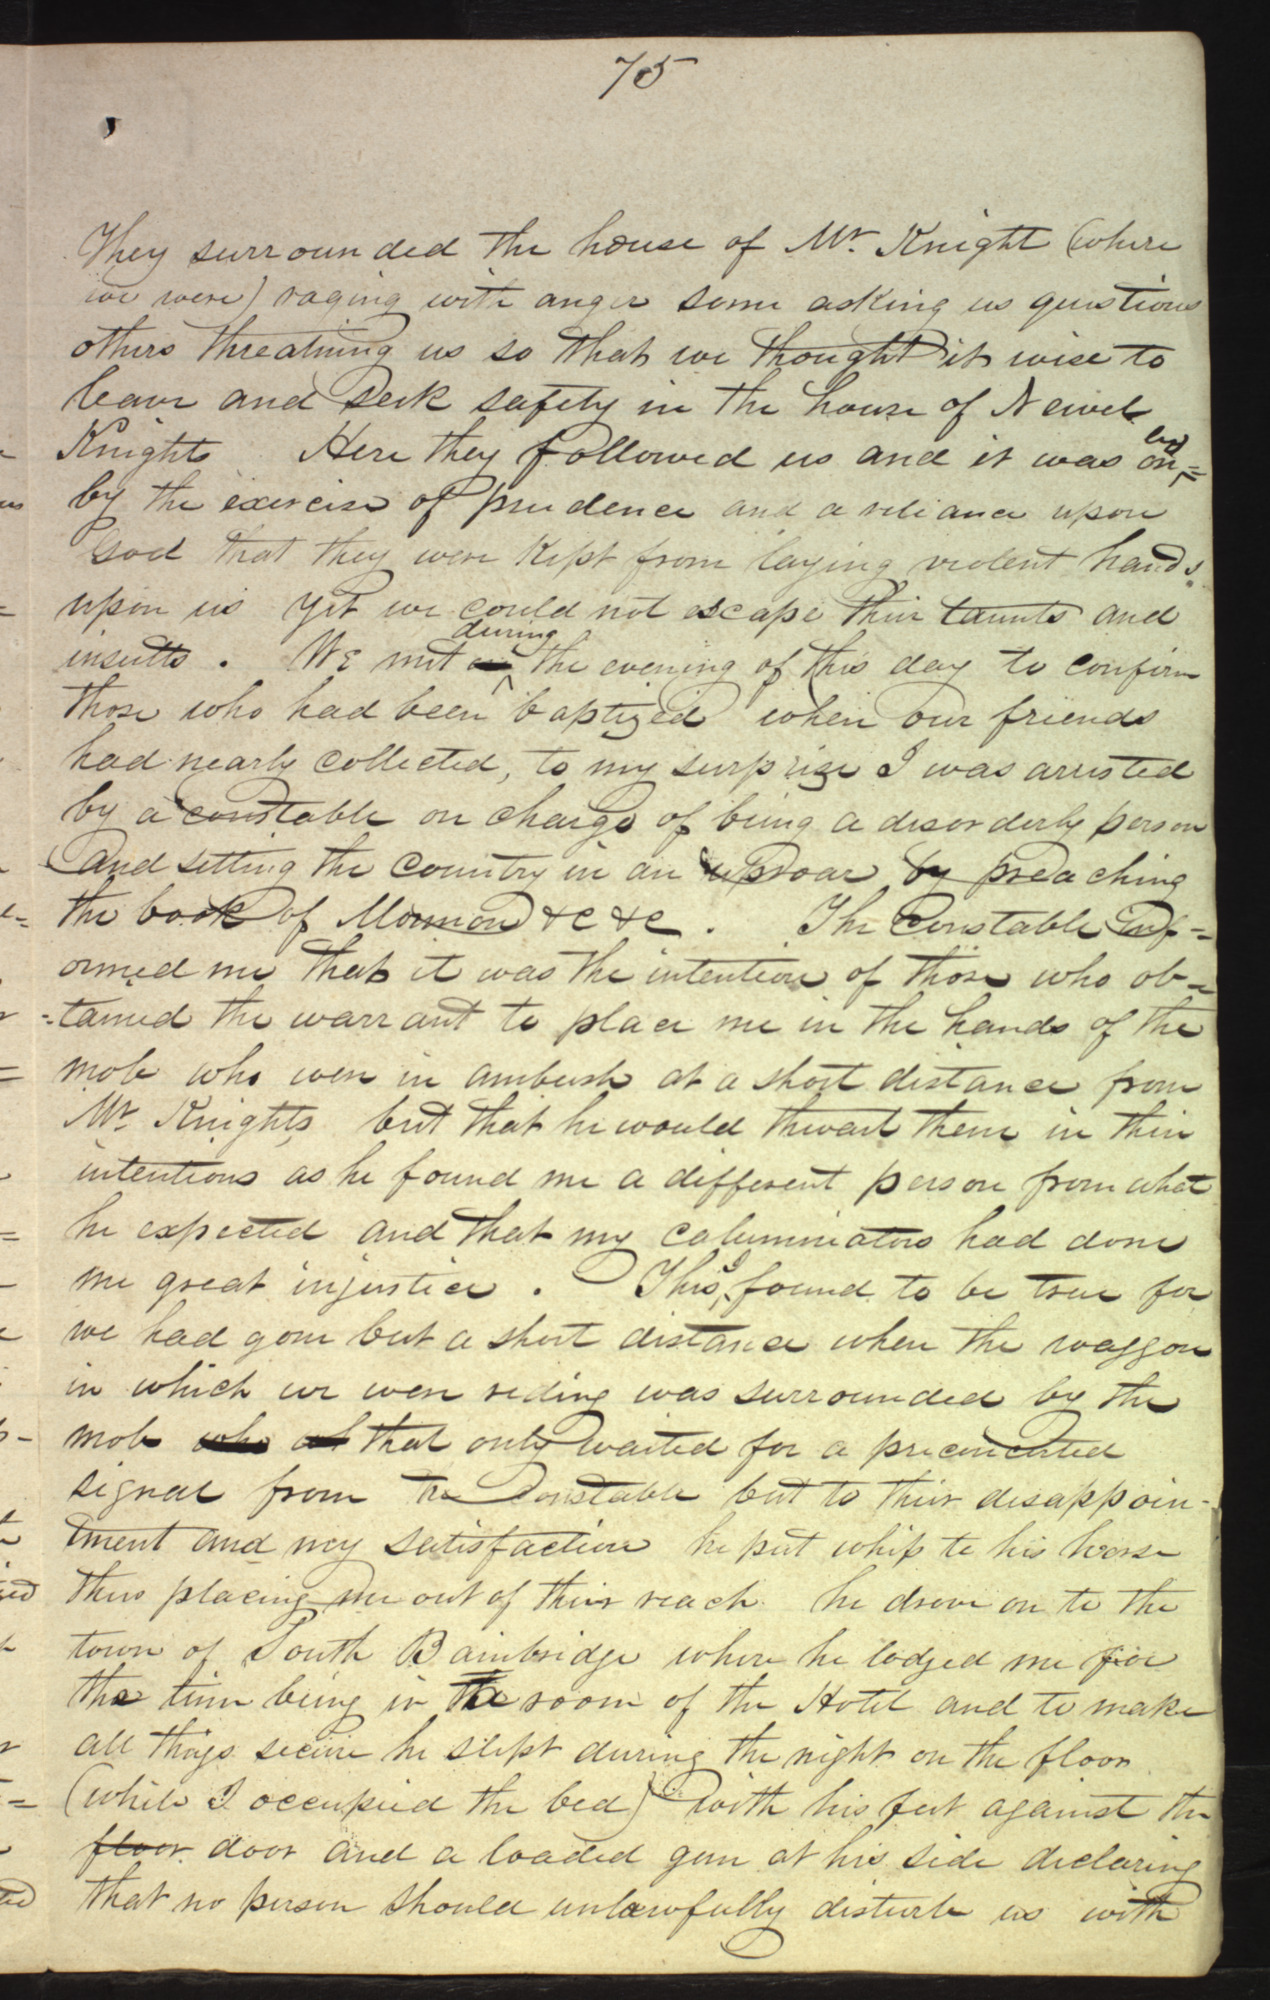 75
They surrounded the house of Mr. Knight (where
we were) raging with anger some asking us questions
others threatning us so that we thought it wise to
leave and seek safety in the house of Newel
Knights Here they followed us and it was on=ly
by the exercise of prudence and a reliance upon
God that they were kept from laying violent hands
upon us yet we could not escape their taunts and
insults. We met during the evening of this day to confirm
those who had been baptized when our friends
had nearly collected, to my surprize I was arrested
by a constable on charge of being a disorderly person
and setting the country in an uproar by preaching
the book of Mormon &c &c. The Constable inf=
ormed me that it was the intention of those who ob=
=tained the warrant to place me in the hands of the
mob who were in ambush at a short distance from
Mr. Knights but that he would thwart them in their
intentions as he found me a different person from what
he expected and that my caluminators had done
me great injustice. This I found to be true for
we had gone but a short distance when the waggon
in which we were riding was surrounded by the
mob who that only waited for a preconcerted
signal from the Constable but to their disappoin-
tment and my satisfaction he put whip to his horse
thus placing me out of their reach he drove on to the
town of South Bainbridge where he lodged me for
the time being in the room of the Hotel and to make
all things secure he slept during the night on the floor
(while I occupied the bed) with his feet against the
floor door and a loaded gun at his side declaring
that no person should unlawfully disturb us with